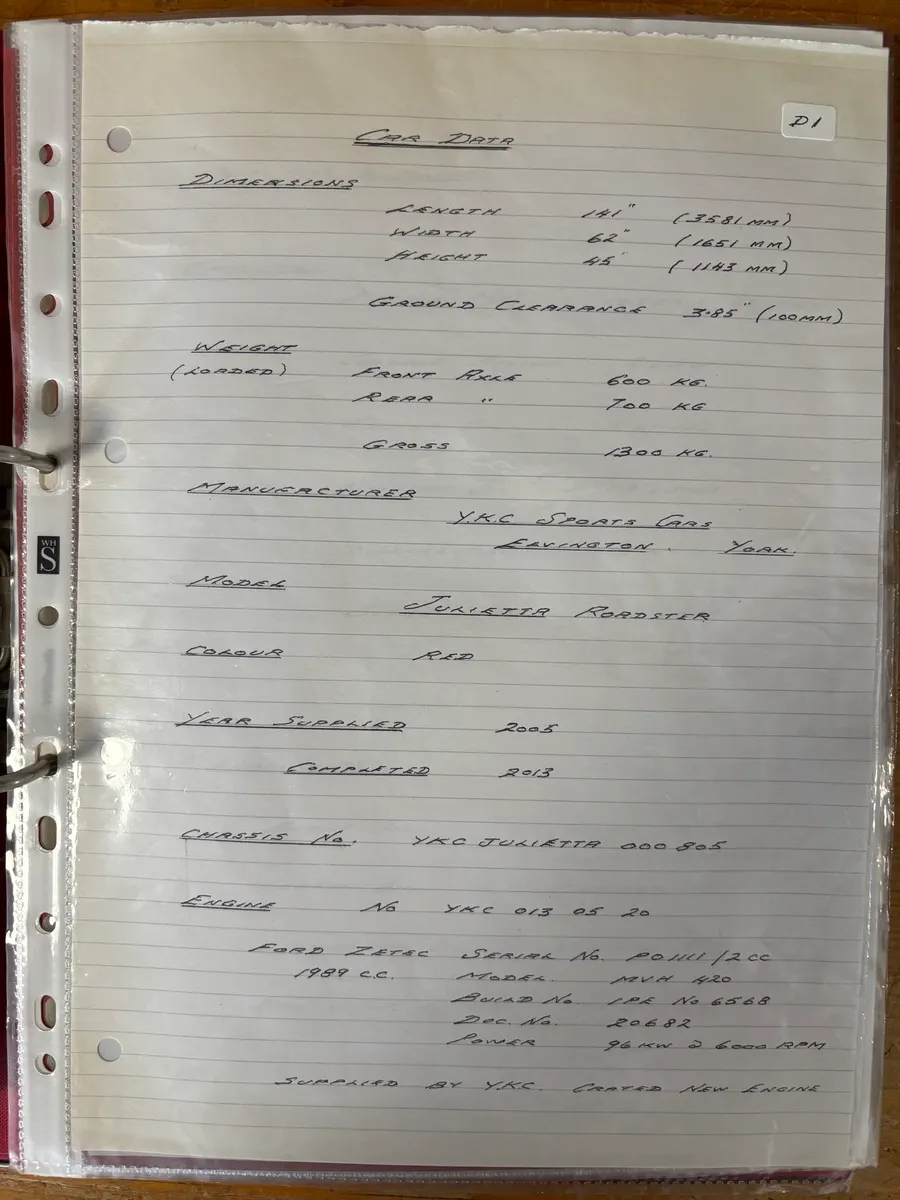 D1
CAR DATA
DIMENSIONS
LENGTH 141" (3581 MM)
WIDTH 62" (1651 MM)
HEIGHT 45" (1143 MM)
GROUND CLEARANCE 3.85" (100MM)
WEIGHT
(LOADED) FRONT AXLE 600 KG.
REAR " 700 KG
GROSS 1300 KG.
MANUFACTURER
Y.K.C SPORTS CARS
ELVINGTON. YORK.
MODEL
JULIETTA ROADSTER
COLOUR RED
YEAR SUPPLIED 2005
COMPLETED 2013
CHASSIS No. YKC JULIETTA 000 805
ENGINE No YKC 013 05 20
FORD ZETEC SERIAL No. PO1111/2CC
1989 C.C. MODEL. MVH 420
BUILD No IPE No 6568
DOC. No. 20682
POWER 96 KW @ 6000 RPM
SUPPLIED BY YKC. CRATED NEW ENGINE
WH
S